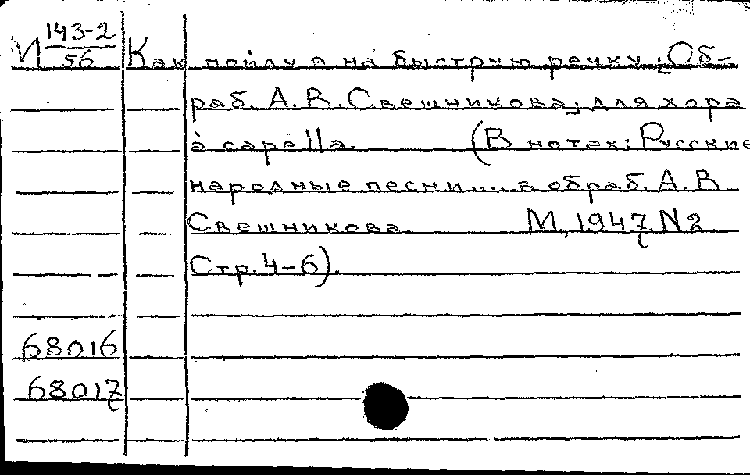 И 143-2/56 Как пойду я на быструю речку; Об-
раб. А.В. Свешникова; для хора
a capella. (В нотах: Русские
народные песни.... в обраб. А.В
Свешникова. М, 1947, N2
Стр. 4-6).
68016
68017